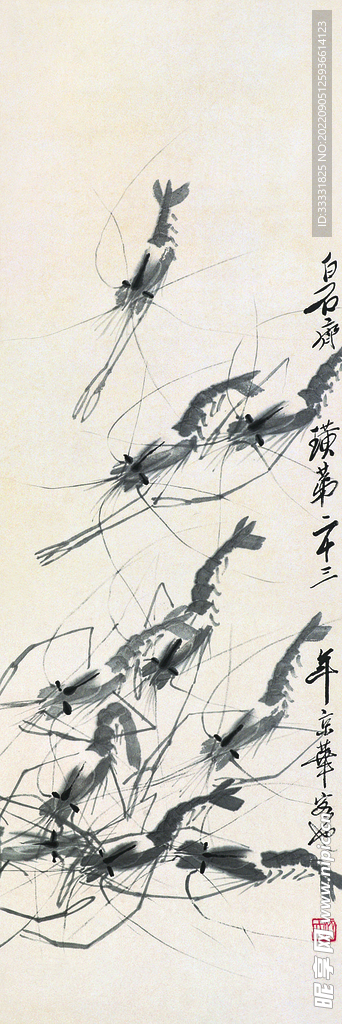 ID:33331825 NO:20220905125936614123
白石齊璜第二十三年京華客也
昵享网